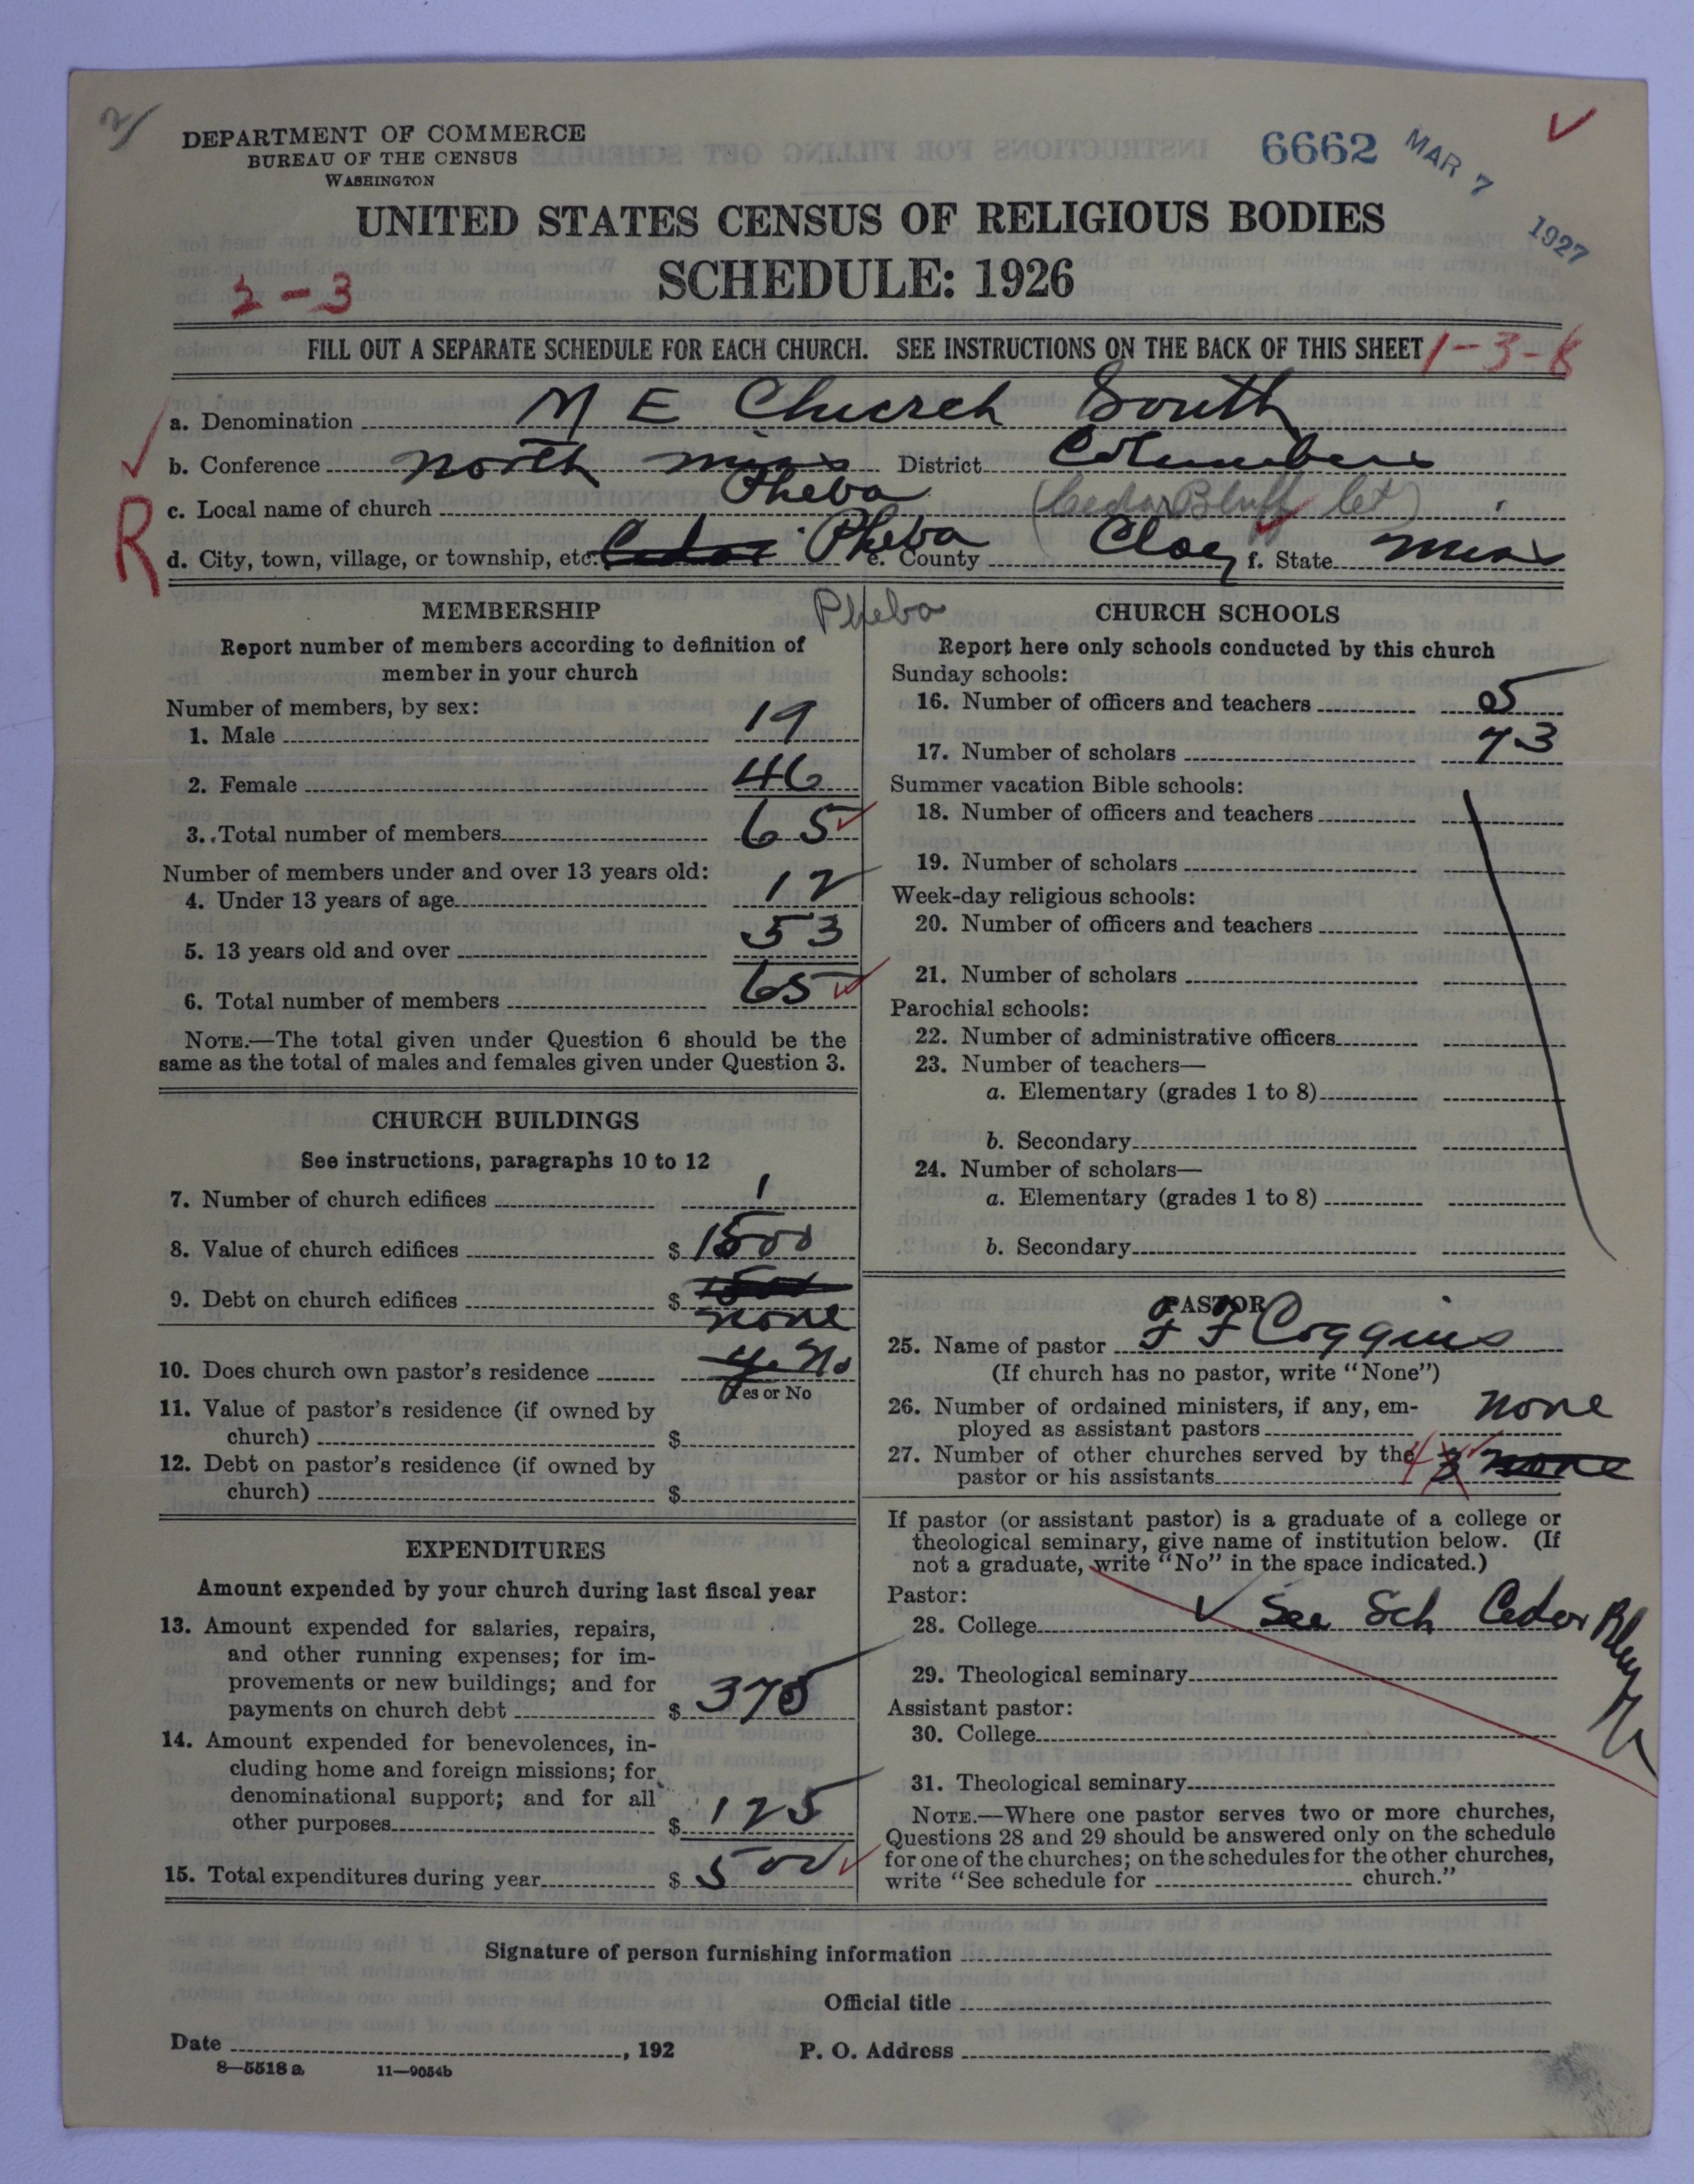 2/
DEPARTMENT OF COMMERCE
BUREAU OF THE CENSUS
WASHINGTON
6662 MAR 7 1927
UNITED STATES CENSUS OF RELIGIOUS BODIES
SCHEDULE: 1926
2-3
FILL OUT A SEPARATE SCHEDULE FOR EACH CHURCH. SEE INSTRUCTIONS ON THE BACK OF THIS SHEET
1-3-8
a. Denomination M E Church South
b. Conference North Miss District Columbus
R
c. Local name of church Pheba (Cedar Bluff Ct)
d. City, town, village, or township, etc. Cedar Pheba e. County Clay f. State Miss
Pheba
MEMBERSHIP
Report number of members according to definition of
member in your church
Number of members, by sex:
1. Male 19
2. Female 46
3. Total number of members 65
Number of members under and over 13 years old:
4. Under 13 years of age 12
5. 13 years old and over 53
6. Total number of members 65
NOTE.—The total given under Question 6 should be the
same as the total of males and females given under Question 3.
CHURCH BUILDINGS
See instructions, paragraphs 10 to 12
7. Number of church edifices 1
8. Value of church edifices $ 1500
9. Debt on church edifices $ 1500
none
10. Does church own pastor's residence No
Yes or No
11. Value of pastor's residence (if owned by
church) $
12. Debt on pastor's residence (if owned by
church) $
EXPENDITURES
Amount expended by your church during last fiscal year
13. Amount expended for salaries, repairs,
and other running expenses; for im-
provements or new buildings; and for
payments on church debt $ 375
14. Amount expended for benevolences, in-
cluding home and foreign missions; for
denominational support; and for all
other purposes $ 125
15. Total expenditures during year $ 500
CHURCH SCHOOLS
Report here only schools conducted by this church
Sunday schools:
16. Number of officers and teachers 5
17. Number of scholars 73
Summer vacation Bible schools:
18. Number of officers and teachers
19. Number of scholars
Week-day religious schools:
20. Number of officers and teachers
21. Number of scholars
Parochial schools:
22. Number of administrative officers
23. Number of teachers—
a. Elementary (grades 1 to 8)
b. Secondary
24. Number of scholars—
a. Elementary (grades 1 to 8)
b. Secondary
PASTOR
25. Name of pastor F F Coggins
(If church has no pastor, write "None")
26. Number of ordained ministers, if any, em-
ployed as assistant pastors none
27. Number of other churches served by the
pastor or his assistants 4 3 none
If pastor (or assistant pastor) is a graduate of a college or
theological seminary, give name of institution below. (If
not a graduate, write "No" in the space indicated.)
Pastor:
28. College See Sch Cedar Bluff
29. Theological seminary
Assistant pastor:
30. College
31. Theological seminary
NOTE.—Where one pastor serves two or more churches,
Questions 28 and 29 should be answered only on the schedule
for one of the churches; on the schedules for the other churches,
write "See schedule for church."
Signature of person furnishing information
Official title
Date , 192 P. O. Address
8—5518 a 11—9054b